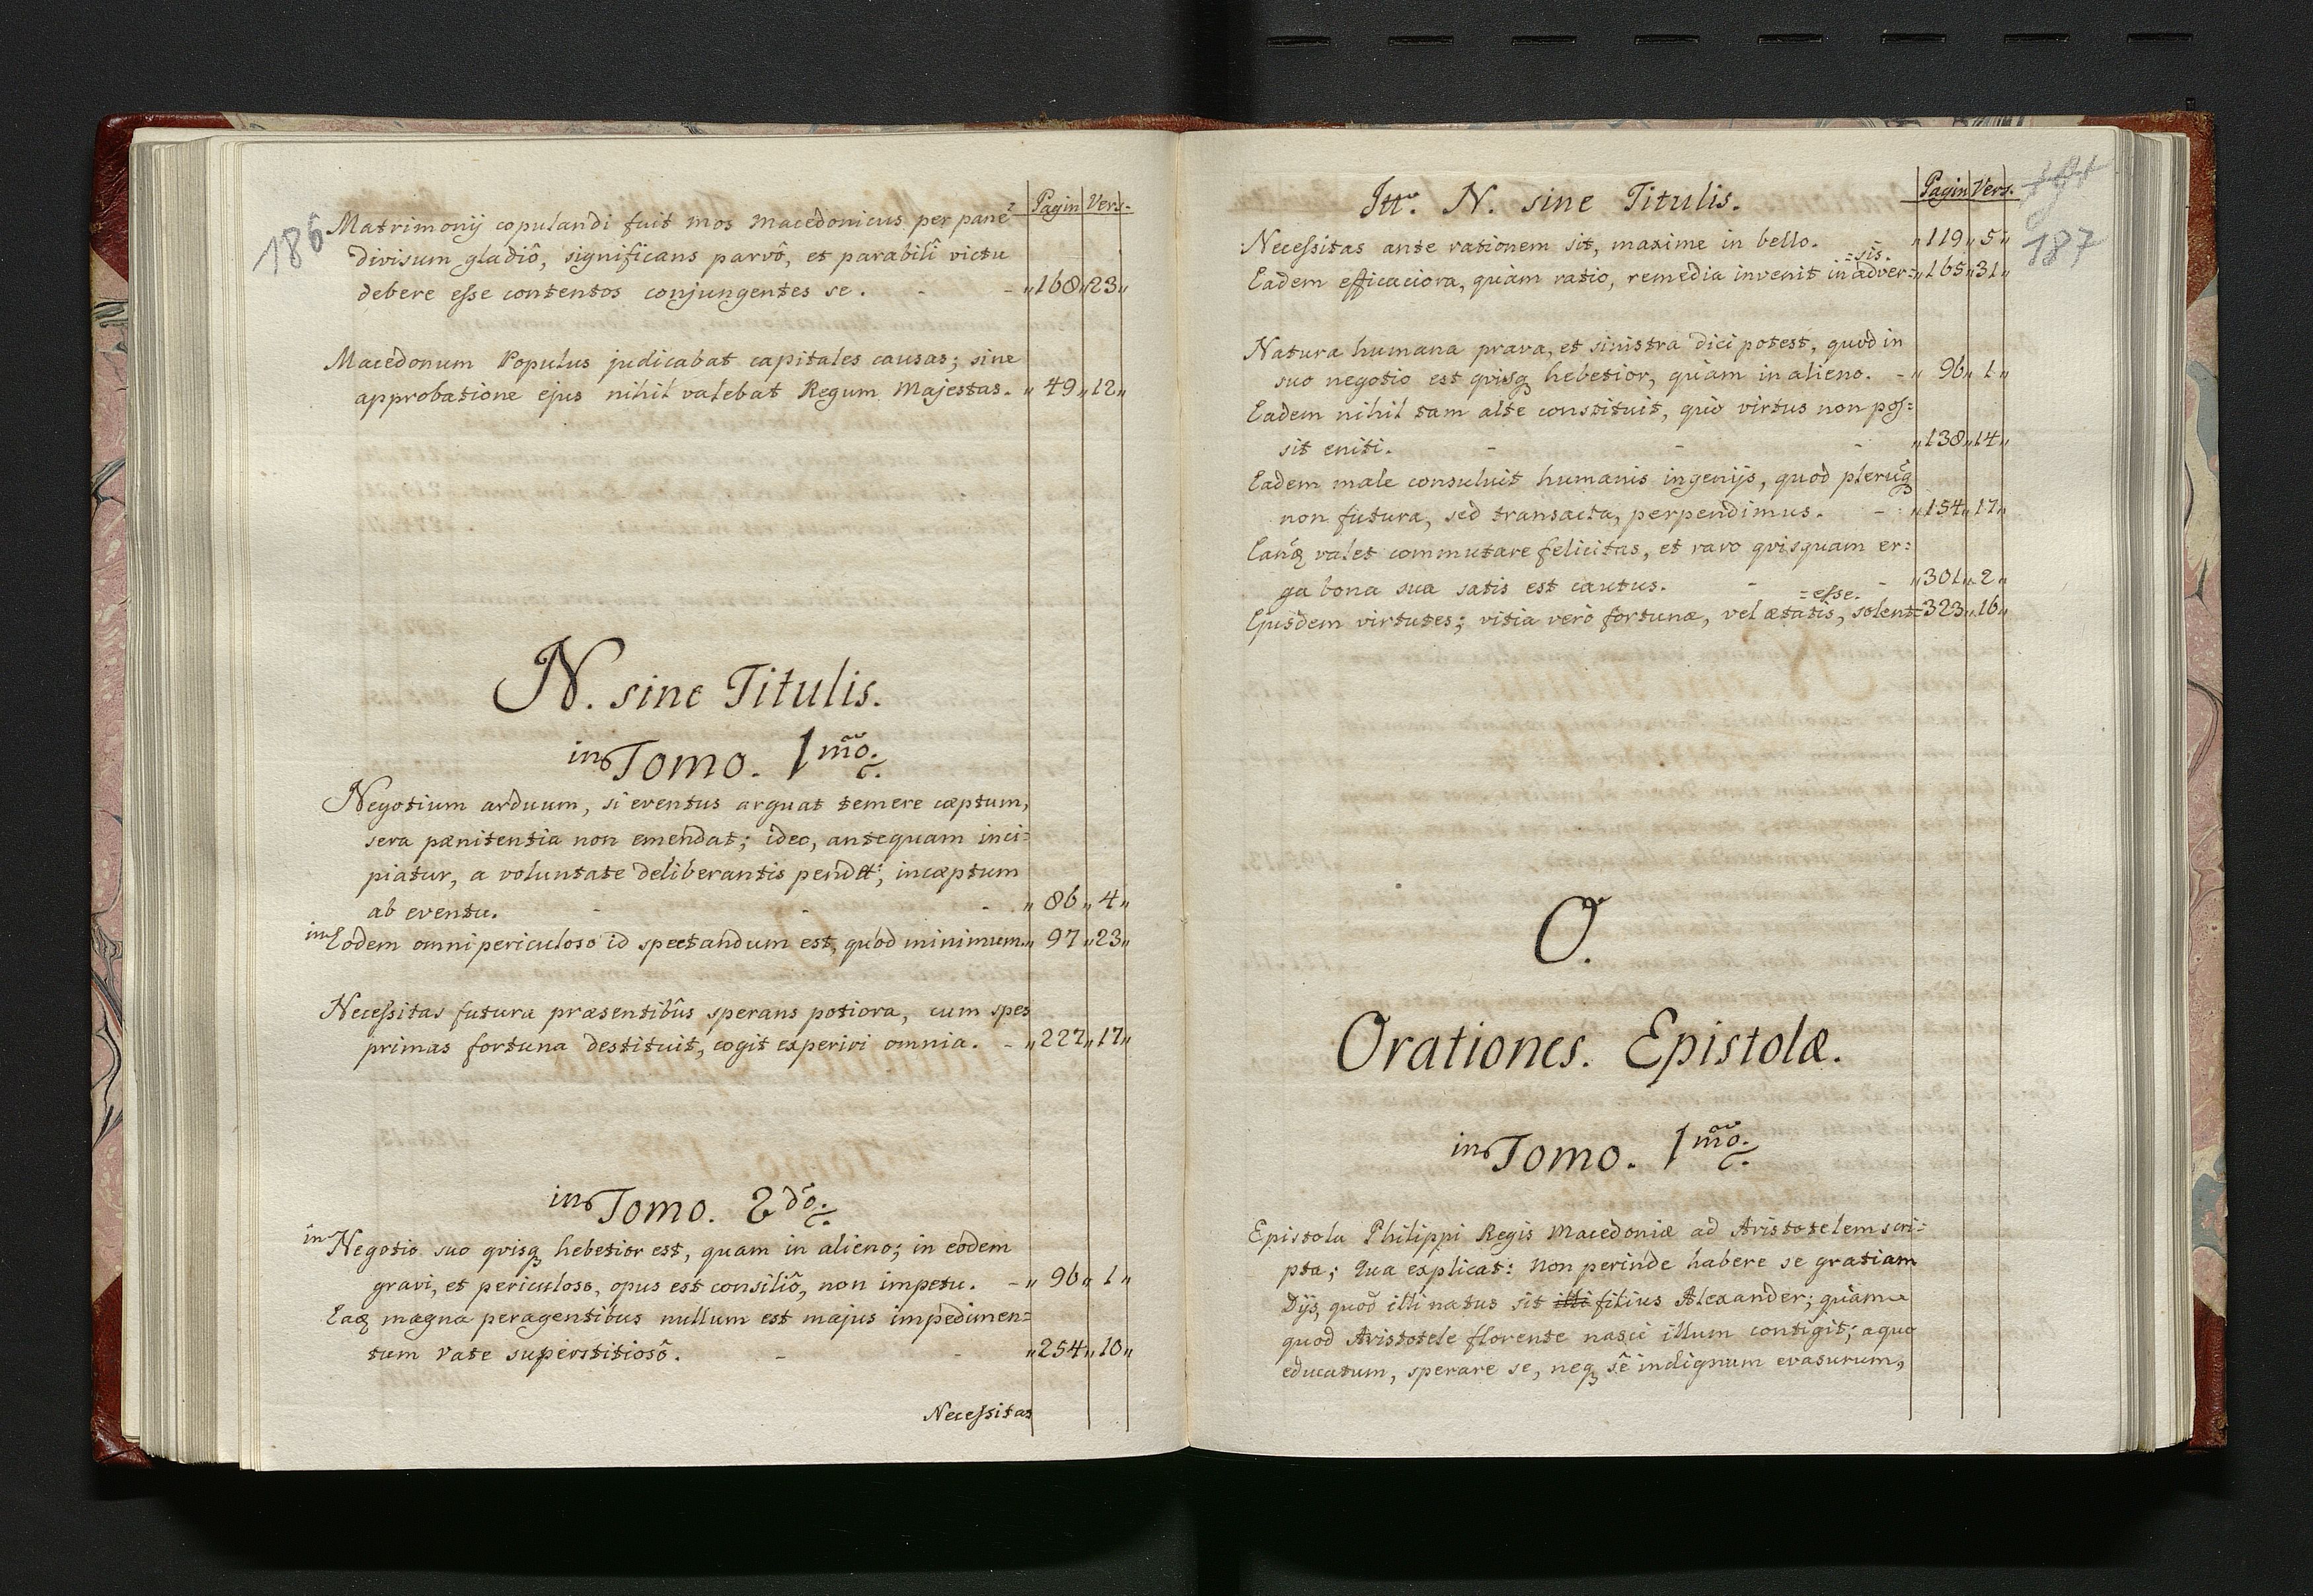 186
Pagin Vers.
Matrimonij copulandi fuit mos Macedonicus per pane
divisum gladiô, significans parvô, et parabilî victu
debere esse contentos conjungentes se. - - „168„23„
Macedonum Populus judicabat capitales causas; sine
approbatione ejus nihil valebat Regum Majestas. „49„12„
N. sine Titulis.
in Tomo. 1mo.
Negotium arduum, si eventus arguat temere cæptum,
sera pænitentia non emendat; ideo, antequam inci=
piatur, a voluntate deliberantis pendet; incæptum
ab eventu. - - - „86„4„
in Eodem omni periculoso id spectandum est, quod minimum „97„23„
Necessitas futura præsentibûs sperans potiora, cum spes
primas fortuna destituit, cogit experiri omnia. - „227„17„
in Tomo. 2do.
in Negotio suo qvisq hebetior est, quam in alieno; in eodem
gravi, et periculoso, opus est consiliô, non impetu. - „96„1„
Eaq magna peragentibus nullum est majus impedimen=
tum Vate superstitiosô. - - „254„10„
Necessitas
Ittr. N. sine Titulis.
Pagin Vers.
187
Necessitas ante rationem sit, maxime in bello. „119„5„
=sis.
Eadem efficaciora, quàm ratio, remedia invenit in adver= „165„31„
Natura humana prava, et sinistra dici potest, quod in
suo negotio est qvisq hebetior, quàm in alieno. - „96„1„
Eadem nihil tam alte constituit, quò virtus non pos=
sit eniti. - - - „138„14„
Eadem male consuluit humanis ingenijs, quod plerúq
non futura, sed transacta, perpendimus. - „154„17„
valet commutare felicitas, et raro qvisquam er=
ga bona sua satis est cautus. - - „301„2„
=esse.
Ejusdem virtutes; vitia verò fortunæ, vel ætatis, solent= 323„16„
O.
Orationes. Epistolæ.
in Tomo. 1mo.
Epistola Philippi Regis Macedoniæ ad Aristotelem scri=
pta; Qua explicat: Non perinde habere se gratiam
Dijs, quod illi natus sit illi filius Alexander; quàm
quod Aristotele florente nasci illum contigit; a quo
educatum, sperare se, neq sê indignum evasurum,